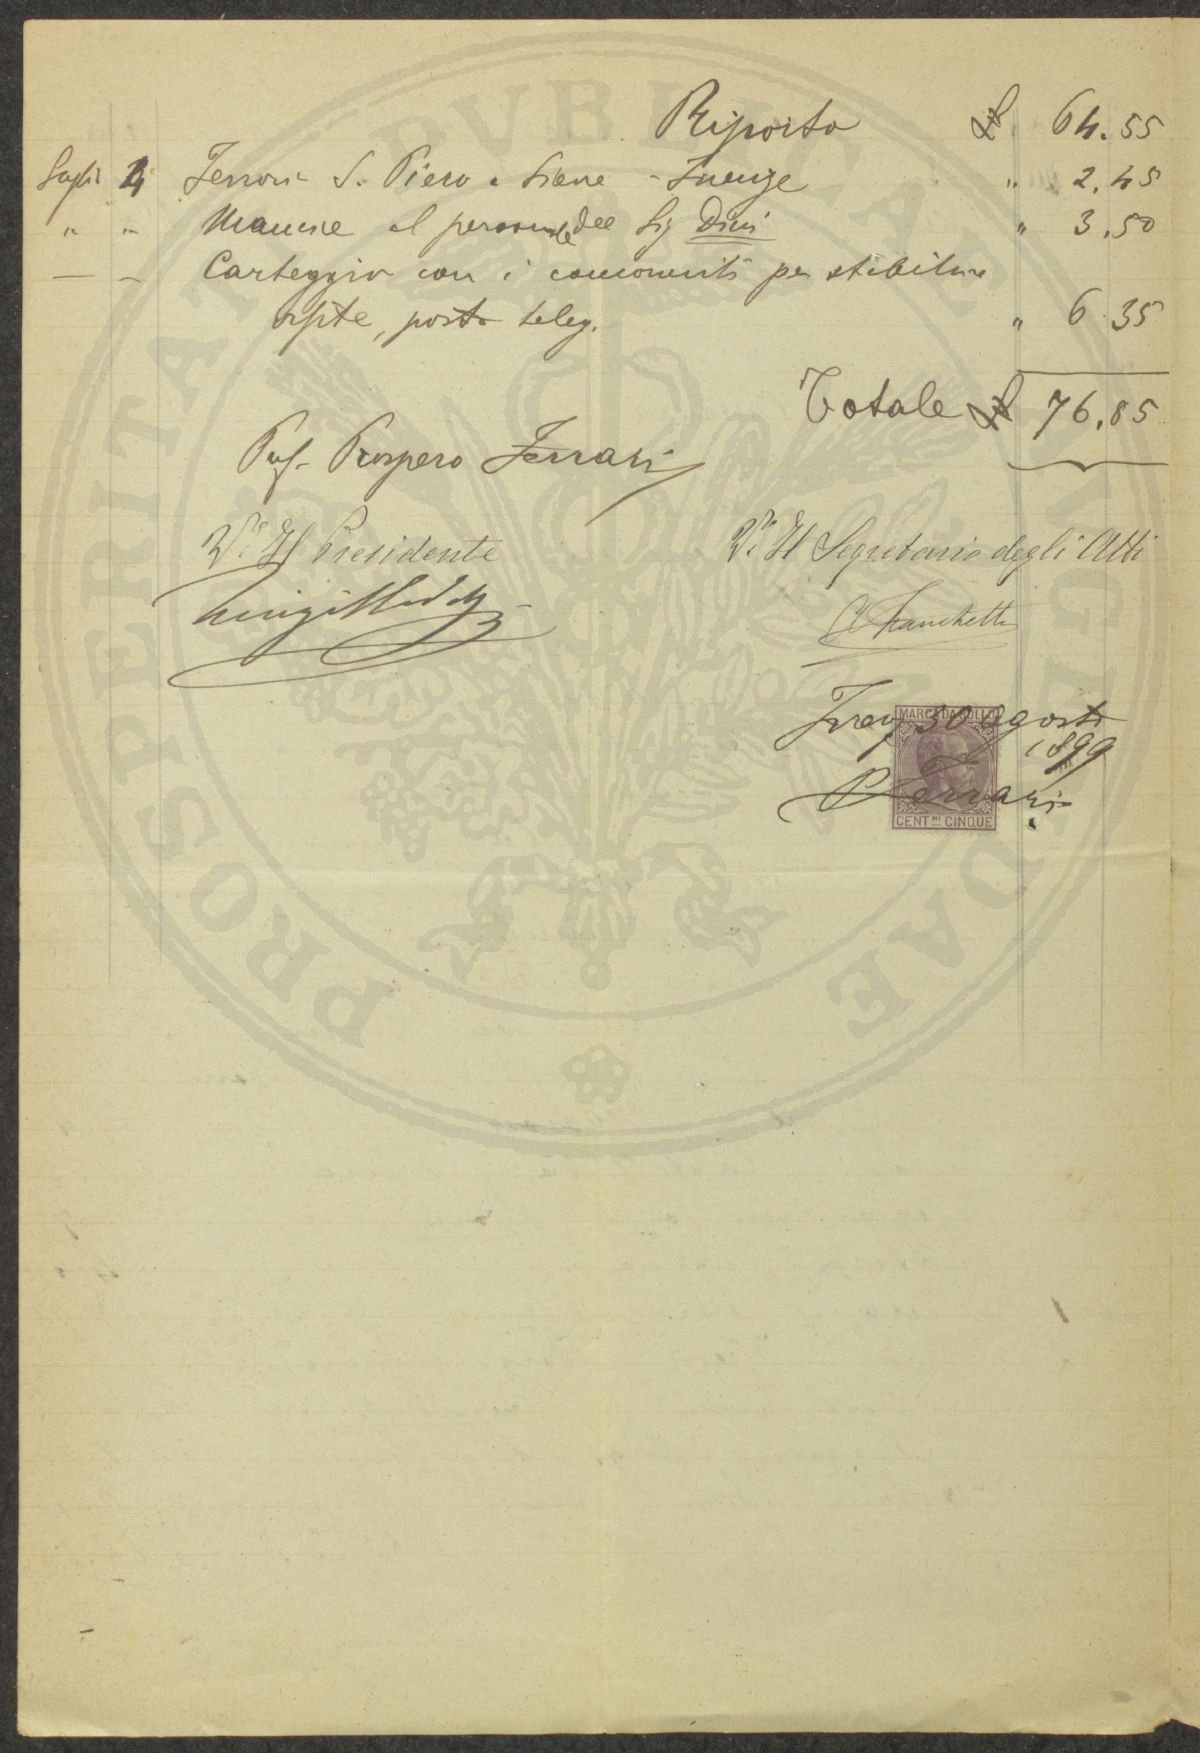 Riporto £ 64.55
Luglio 4 Ferrovia S. Piero a Sieve - Firenze " 2.45
" " Mancie al personale del Sig Dini " 3.50
— " Carteggio con i componenti per stabilire
gite, posta teleg. " 6.35
Totale £ 76.85
Prof. Prospero Ferrari
V.º Il Presidente
V.º Il Segretario degli Atti
Luigi
C. Franchetti
MARCA DA BOLLO
30 agosto
1899
P Ferrari
CENT.MI CINQUE
PROSPERITATI PVBLICAE